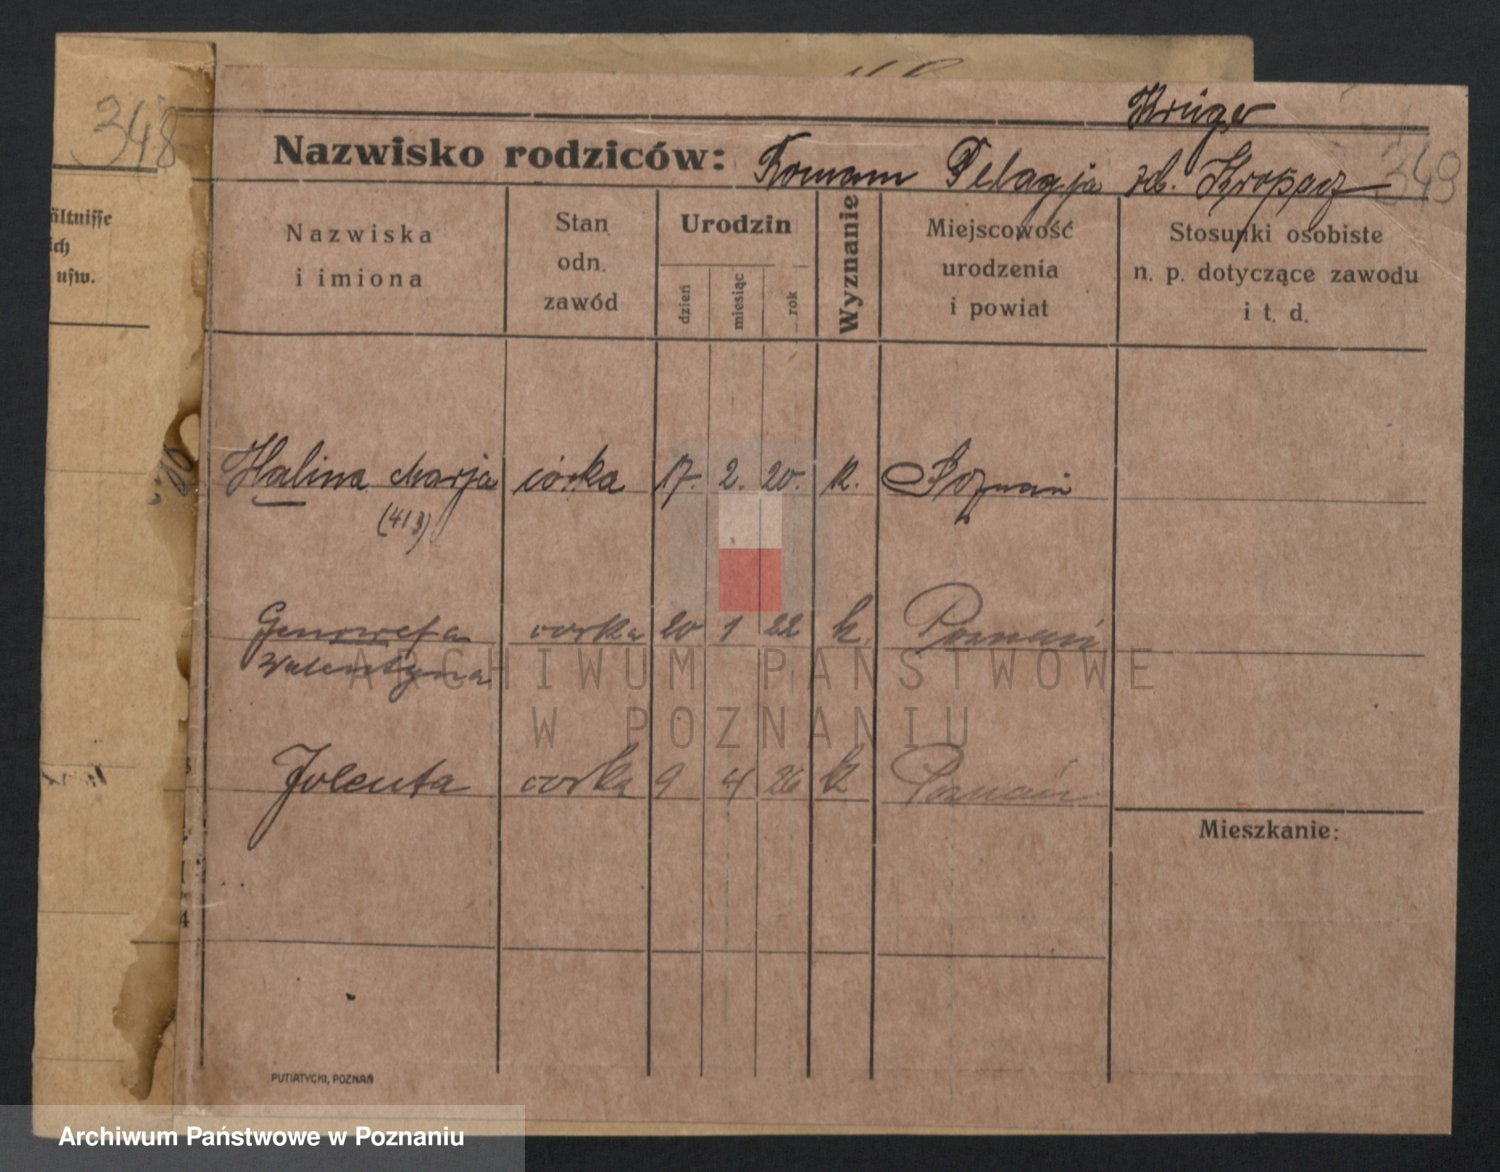 348
Krüger
Nazwisko rodziców: Roman Pelagja zd. Kropacz 349
ältnisse
ich
usw.
Nazwiska
i imiona
Stan
odn.
zawód
Urodzin
dzień
miesiąc
rok
Wyznanie
Miejscowość
urodzenia
i powiat
Stosunki osobiste
n. p. dotyczące zawodu
i t. d.
Halina Marja córka 17. 2. 20. k. Poznań
(413)
Genowefa córka 20 1 22 k. Poznań
Walentyna
ARCHIWUM PAŃSTWOWE
W POZNANIU
Jolenta córka 9 4 26 k Poznań
Mieszkanie:
4
PUTIATYCKI, POZNAŃ
Archiwum Państwowe w Poznaniu